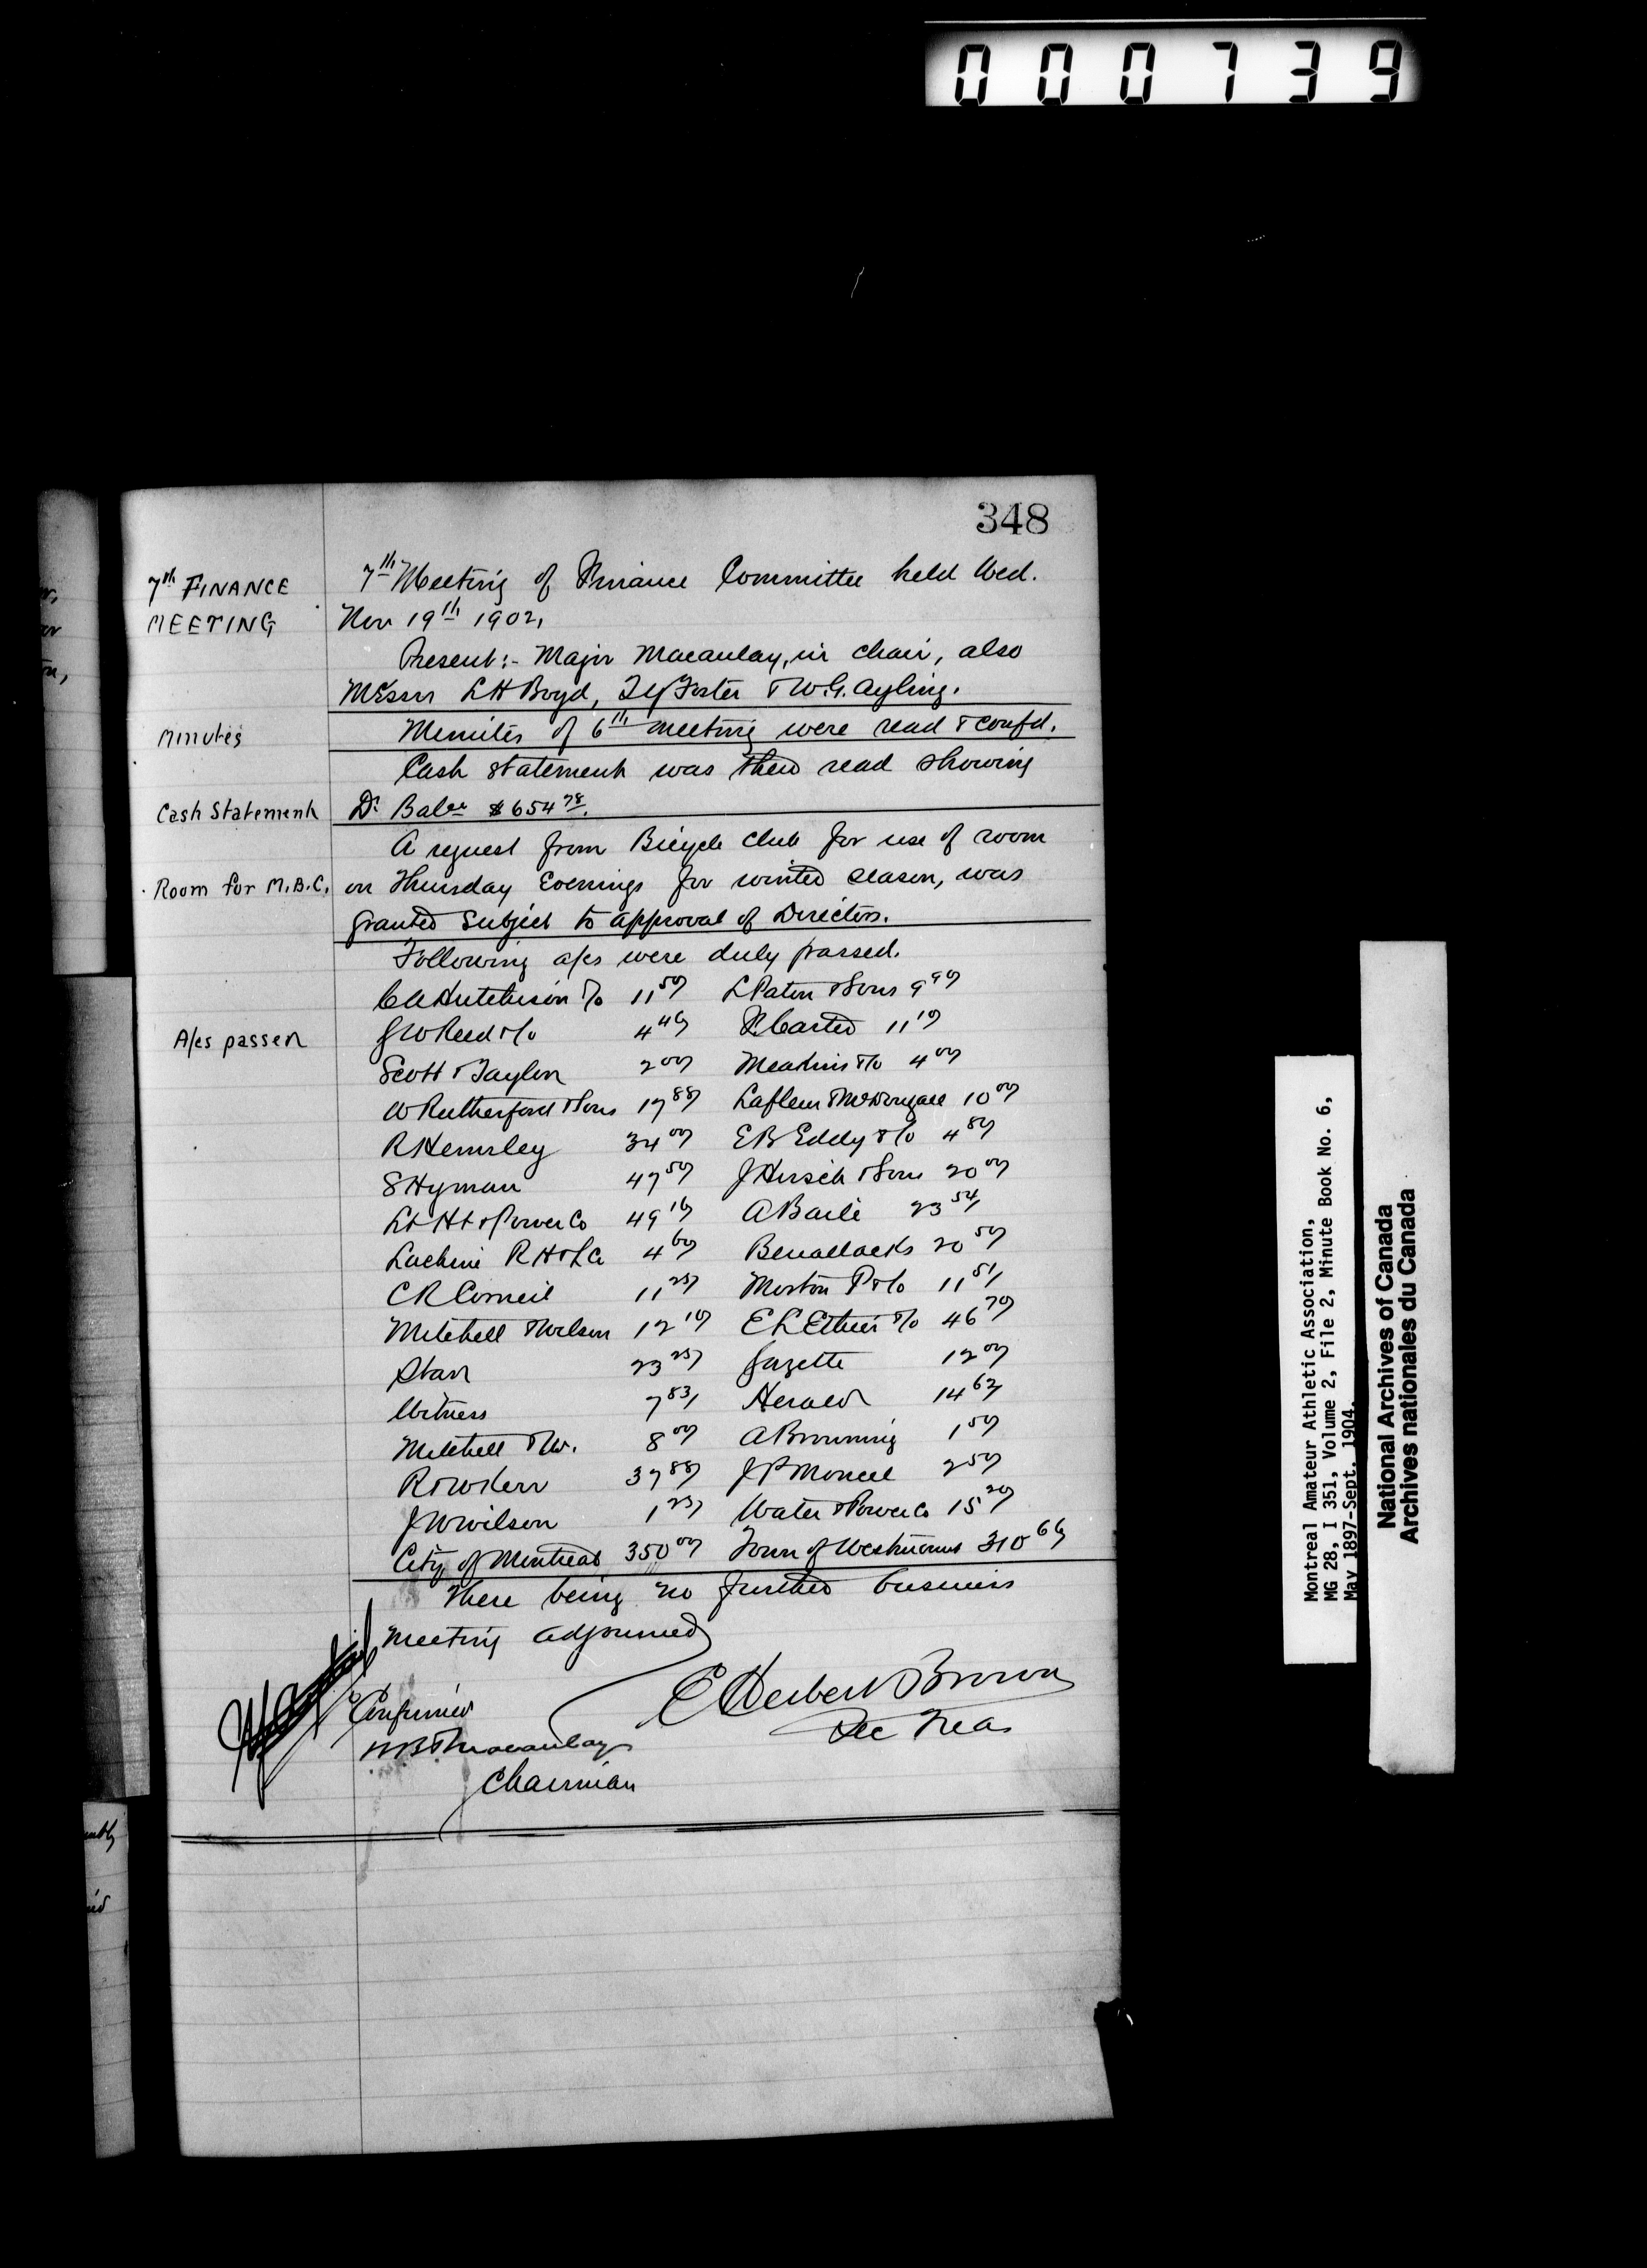 000739
348
7th FINANCE MEETING
7th Meeting of Finance Committee held Wed.
Nov 19th 1902,
Present:- Major Macaulay, in chair, also
Messrs L H Boyd, T Y Foster & W. G. Ayling.
Minutes
Minutes of 6th meeting were read & confd.
Cash statement was then read showing
Cash Statement
Dr Balce $654 78.
A request from Bicycle Club for use of room
Room for M.B.C.
on Thursday Evenings for winter season, was
granted subject to approval of Directors.
Following a/cs were duly passed.
C A Hutchison & Co 11 50 L Paton & Sons 9 90
A/cs passed
G W Reed & Co 4 40 R Carter 11 10
Scott & Taylor 2 00 Meakins & Co 4 00
W Rutherford & Sons 17 88 Lafleur & McDougall 10 00
R Hemsley 34 00 E B Eddy & Co 4 80
S Hyman 47 50 J Hirsch & Sons 20 00
Lt Ht & Power Co 49 10 A Baile 23 54
Lachine R H & L Co 4 60 Benallacks 20 50
C R Corneil 11 25 Morton P & Co 11 51
Mitchell & Wilson 12 10 E L Ethier & Co 46 70
Star 23 25 Gazette 12 00
Witness 7 83 Herald 14 62
Mitchell & W. 8 00 A Browning 1 50
R & W Kerr 37 88 J P 2 50
J W Wilson 1 25 Water & Power Co 15 20
City of Montreal 350 00 Town of Westmount 310 66
There being no further business
meeting adjourned
Confirmed
C Herbert Brown
Sec Treas
Macaulay
Chairman
Montreal Amateur Athletic Association,
MG 28, I 351, Volume 2, File 2, Minute Book No. 6,
May 1897-Sept. 1904.
National Archives of Canada
Archives nationales du Canada